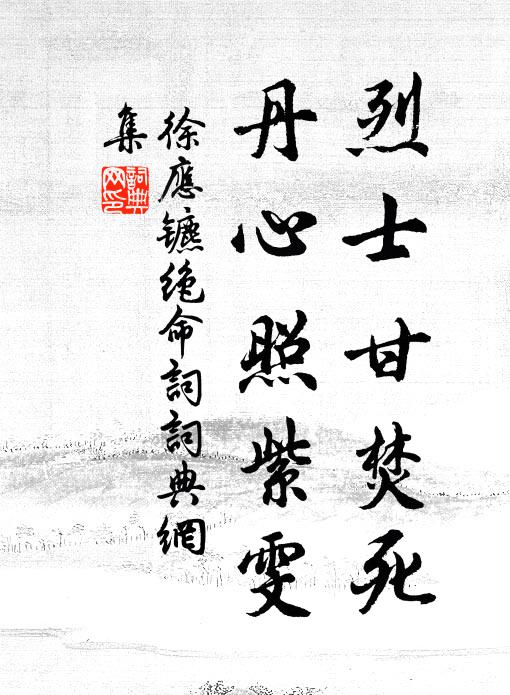 烈士甘焚死
丹心照紫雯
徐應鑣绝命詞詞典網
集
詞典網印